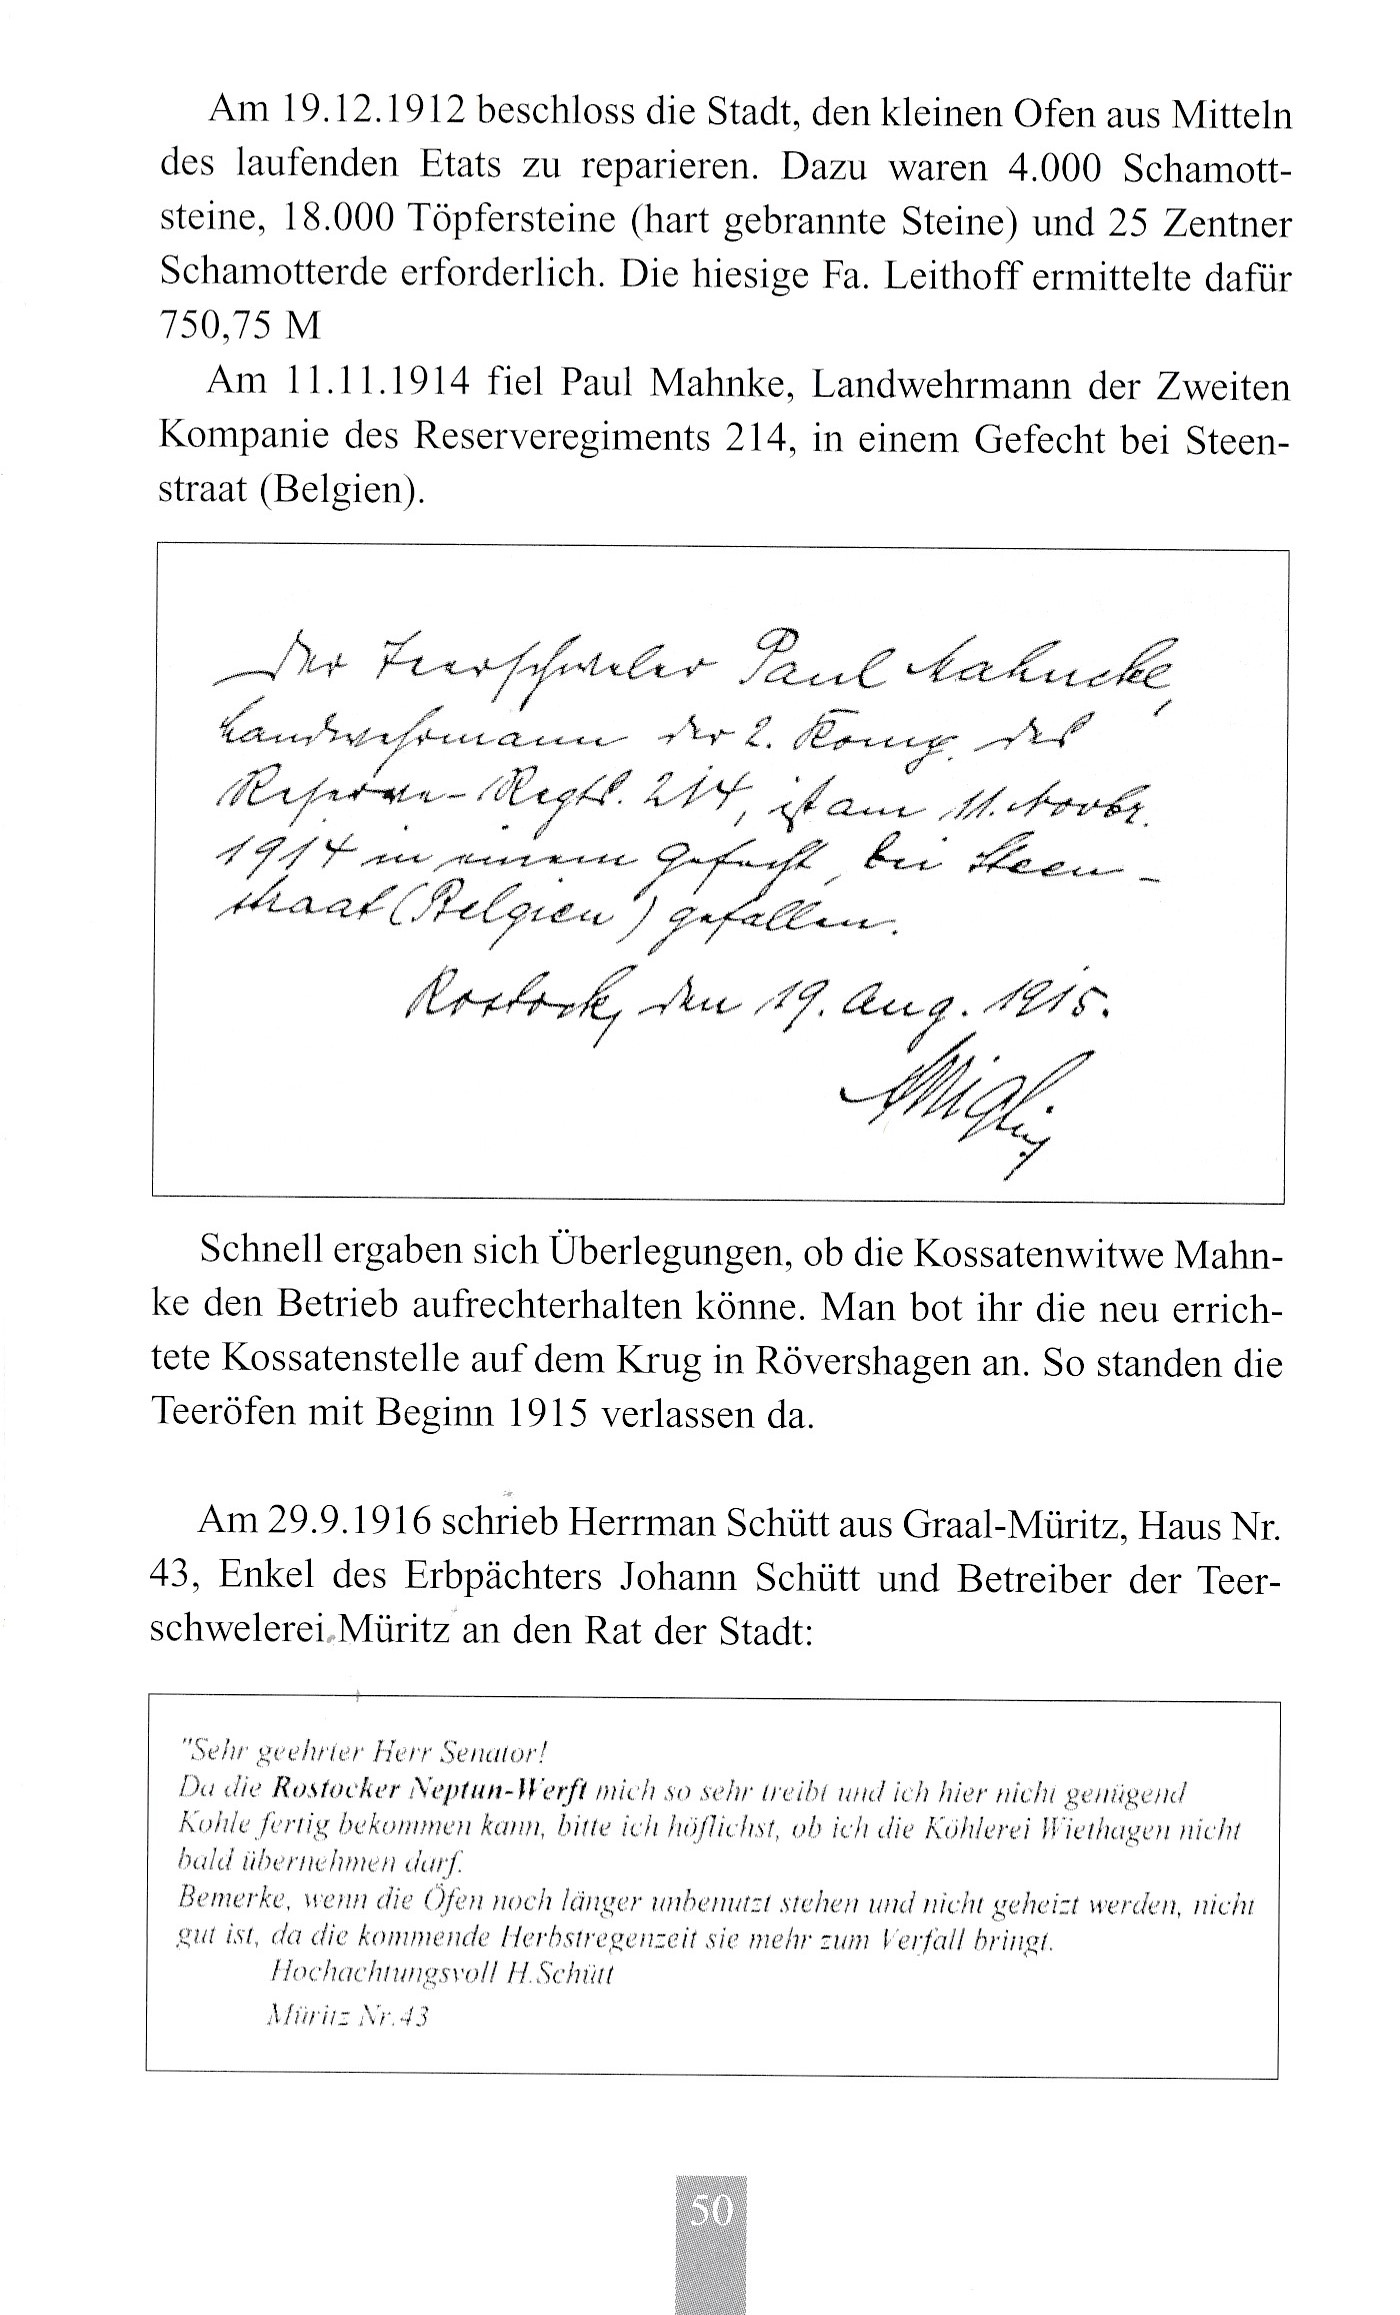 Am 19.12.1912 beschloss die Stadt, den kleinen Ofen aus Mitteln
des laufenden Etats zu reparieren. Dazu waren 4.000 Schamott-
steine, 18.000 Töpfersteine (hart gebrannte Steine) und 25 Zentner
Schamotterde erforderlich. Die hiesige Fa. Leithoff ermittelte dafür
750,75 M
Am 11.11.1914 fiel Paul Mahnke, Landwehrmann der Zweiten
Kompanie des Reserveregiments 214, in einem Gefecht bei Steen-
straat (Belgien).
Der Teerschweler Paul Mahncke,
Landwehrmann der 2. Komp. des
Reserve-Regts. 214, ist am 11. Novbr.
1914 in einem Gefecht, bei Steen-
straat (Belgien) gefallen.
Rostock, den 19. Aug. 1915.
Schnell ergaben sich Überlegungen, ob die Kossatenwitwe Mahn-
ke den Betrieb aufrechterhalten könne. Man bot ihr die neu errich-
tete Kossatenstelle auf dem Krug in Rövershagen an. So standen die
Teeröfen mit Beginn 1915 verlassen da.
Am 29.9.1916 schrieb Herrman Schütt aus Graal-Müritz, Haus Nr.
43, Enkel des Erbpächters Johann Schütt und Betreiber der Teer-
schwelerei Müritz an den Rat der Stadt:
"Sehr geehrter Herr Senator!
Da die Rostocker Neptun-Werft mich so sehr treibt und ich hier nicht genügend
Kohle fertig bekommen kann, bitte ich höflichst, ob ich die Köhlerei Wiethagen nicht
bald übernehmen darf.
Bemerke, wenn die Öfen noch länger unbenutzt stehen und nicht geheizt werden, nicht
gut ist, da die kommende Herbstregenzeit sie mehr zum Verfall bringt.
Hochachtungsvoll H.Schütt
Müritz Nr.43
50